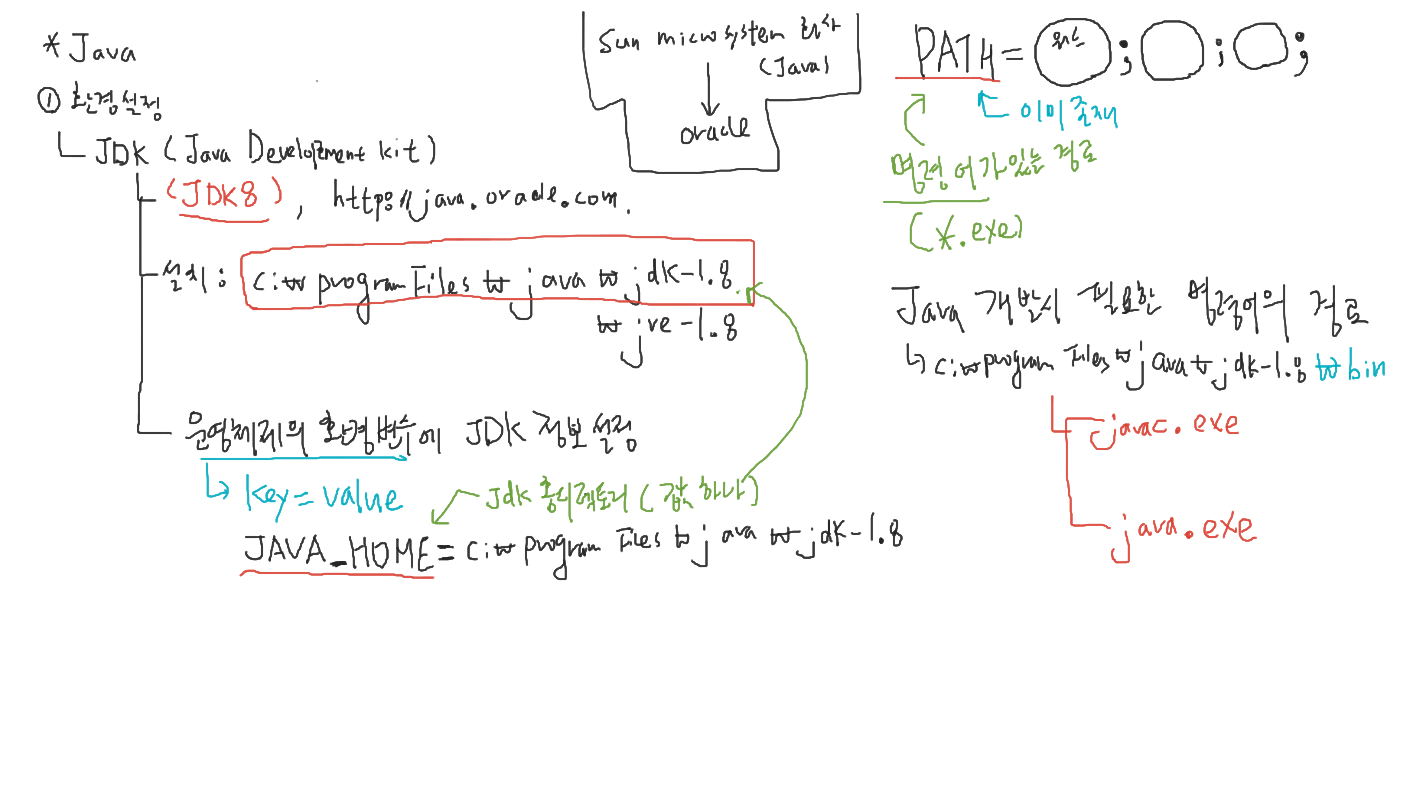 * Java
① 환경설정
JDK (Java Development kit)
(JDK8), https://java.oracle.com.
설치: c:₩program Files ₩ java ₩ jdk-1.8
₩ jre-1.8
운영체제의 환경변수에 JDK 정보 설정
key = value
Jdk 홈디렉토리 (값은 하나)
JAVA_HOME = c:₩ program Files ₩ java ₩ jdk-1.8
Sun microsystem 회사
(Java)
oracle
PATH = ; ; ;
이미 존재
명령어가있는 경로
(*.exe)
Java 개발시 필요한 명령어의 경로
c:₩program Files ₩ java ₩ jdk-1.8 ₩bin
javac.exe
java.exe